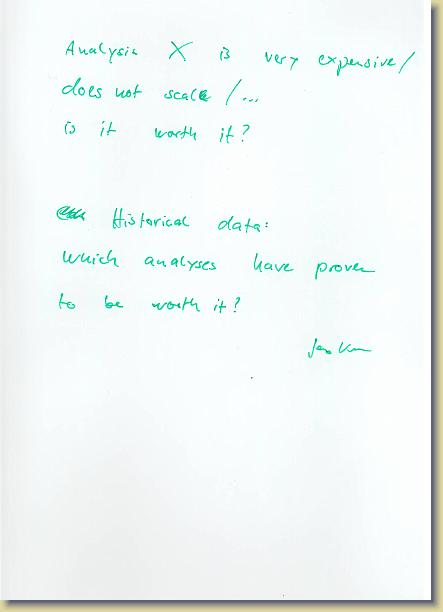 Analysis X is very expensive/
does not scale /...
is it worth it?
Historical data:
which analyses have proven
to be worth it?